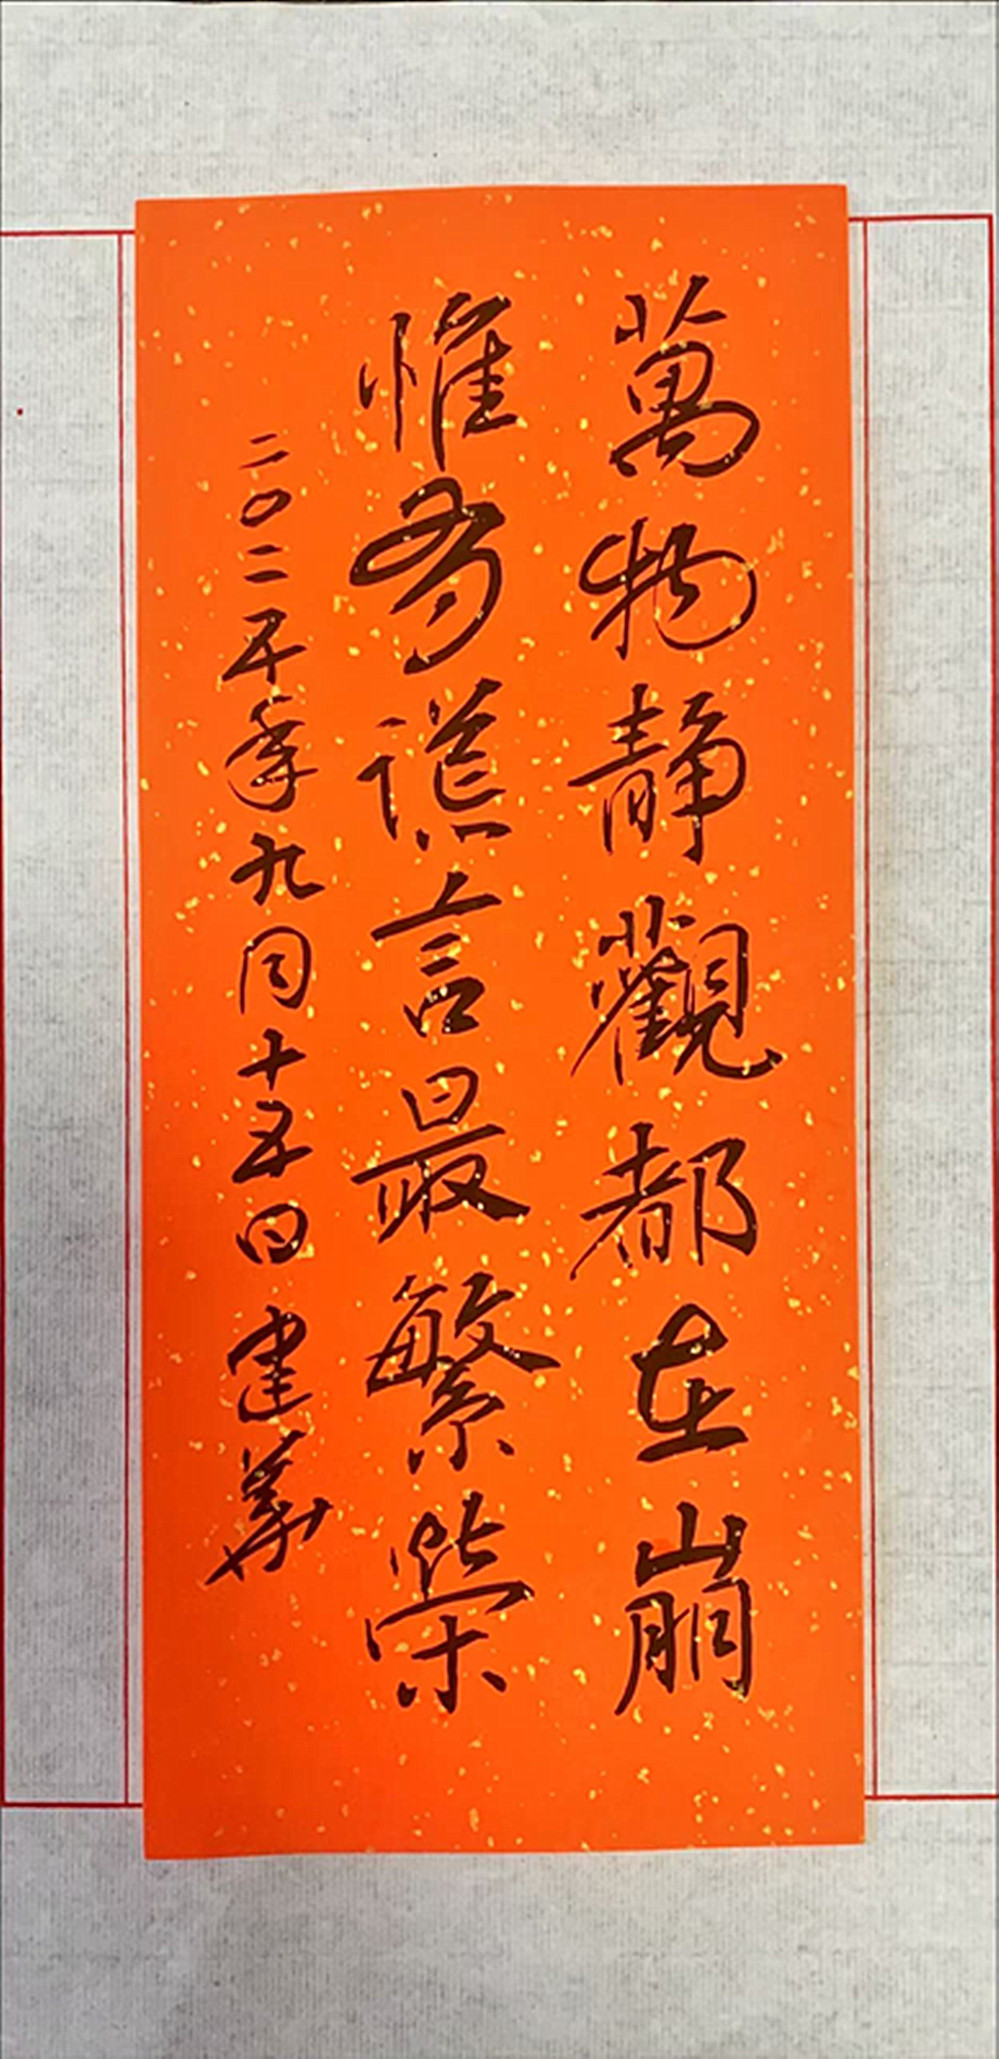 萬物靜觀都在崩
惟有謊言最繁榮
二〇二五年九月十五日 建華